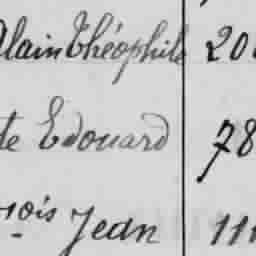 Alain Théophile 20
te Edouard 78
nois Jean 11